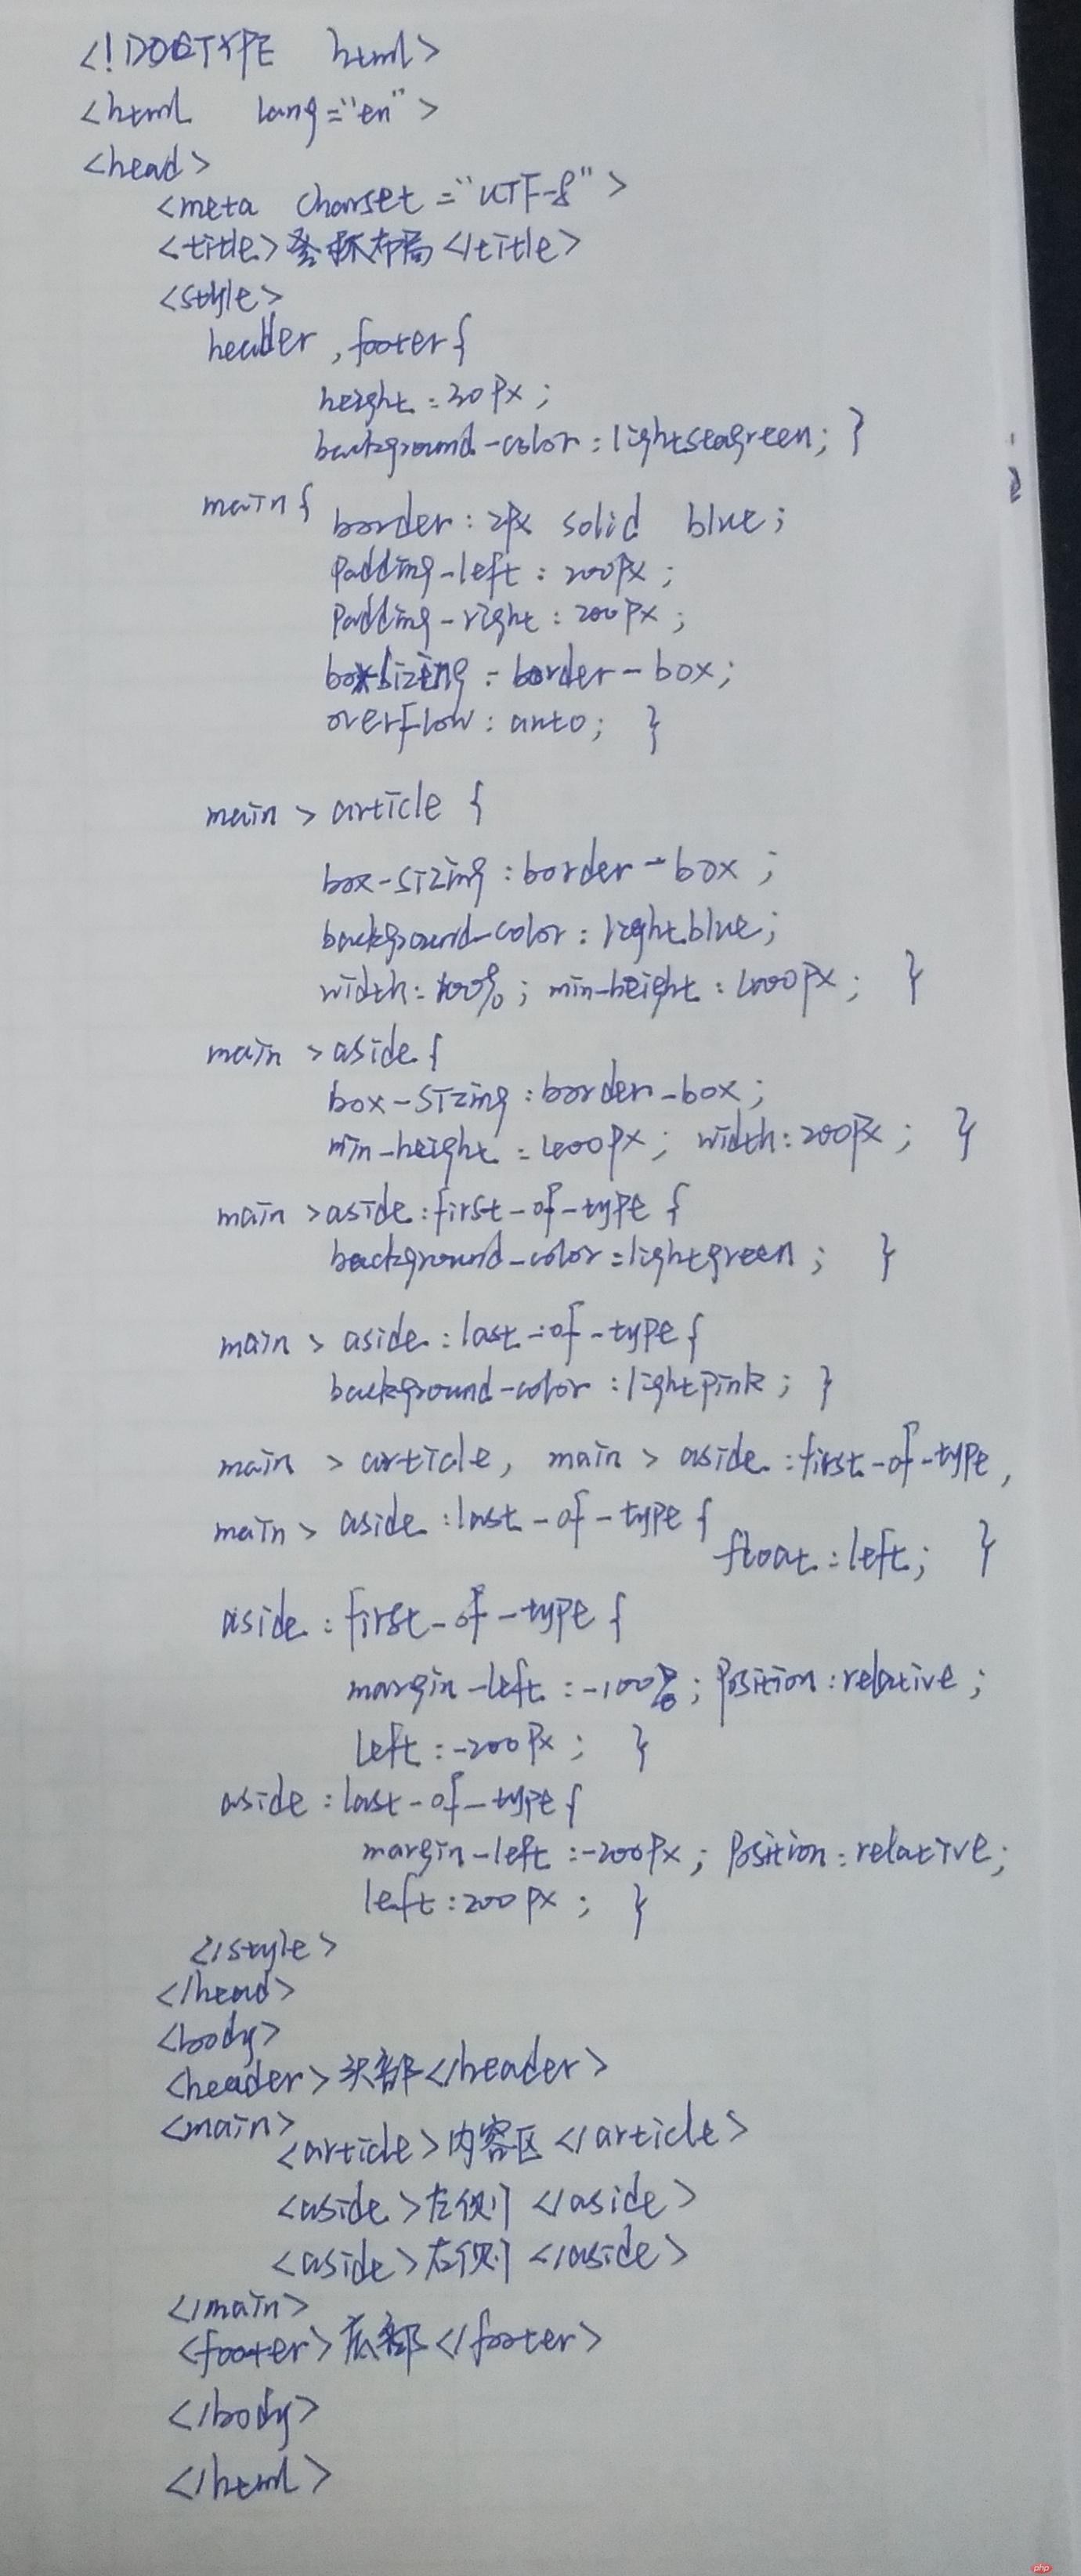 <!DOCTYPE html>
<html lang="en">
<head>
<meta charset="UTF-8">
<title>圣杯布局</title>
<style>
header, footer{
height:30px;
background-color:lightseagreen; }
main{
border:2px solid blue;
padding-left:200px;
padding-right:200px;
box-sizing:border-box;
overflow:auto; }
main > article {
box-sizing:border-box;
background-color:lightblue;
width:100%; min-height:400px; }
main > aside{
box-sizing:border-box;
min-height:400px; width:200px; }
main >aside:first-of-type{
background-color:lightgreen; }
main > aside:last-of-type{
background-color:lightpink; }
main > article, main > aside:first-of-type,
main> aside:last-of-type{
float:left; }
aside:first-of-type{
margin-left:-100%; position:relative;
left:-200px; }
aside:last-of-type{
margin-left:-200px; position:relative;
left:200px; }
</style>
</head>
<body>
<header>头部</header>
<main>
<article>内容区</article>
<aside>左侧</aside>
<aside>右侧</aside>
</main>
<footer>底部</footer>
</body>
</html>
php